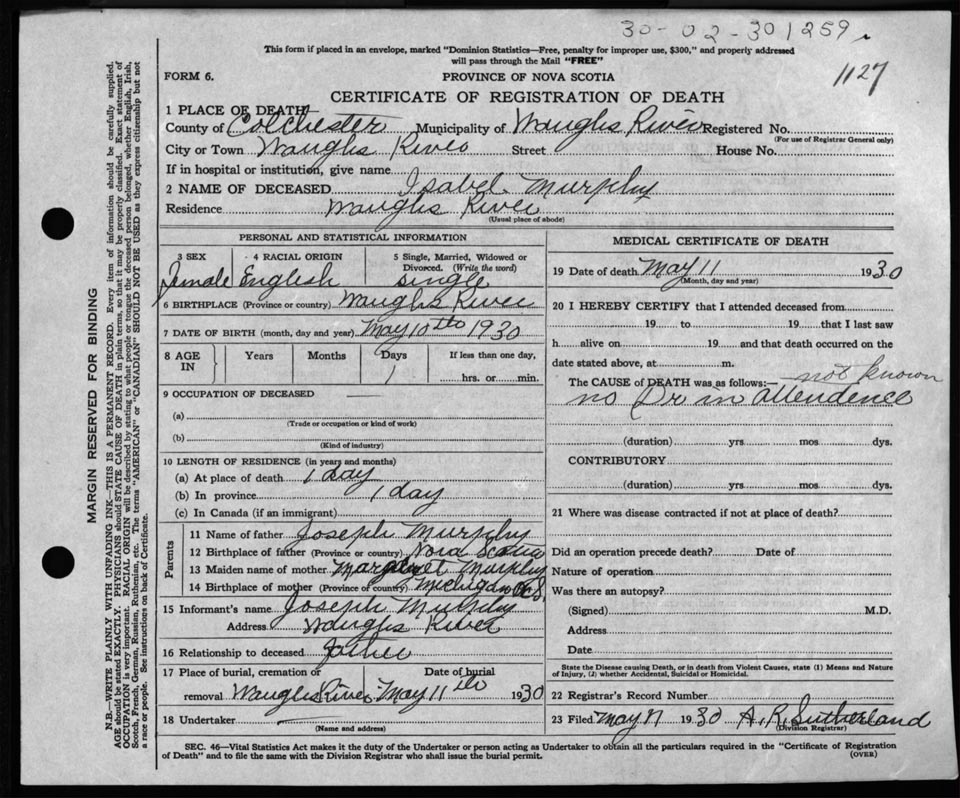 30-02-301259
1127
This form if placed in an envelope, marked "Dominion Statistics—Free, penalty for improper use, $300," and properly addressed
will pass through the Mail "FREE"
FORM 6.
PROVINCE OF NOVA SCOTIA
CERTIFICATE OF REGISTRATION OF DEATH
1 PLACE OF DEATH
County of Colchester Municipality of Waughs River Registered No.
(For use of Registrar General only)
City or Town Waughs River Street House No.
If in hospital or institution, give name
2 NAME OF DECEASED Isabel Murphy
Residence Waughs River
(Usual place of abode)
PERSONAL AND STATISTICAL INFORMATION
3 SEX 4 RACIAL ORIGIN 5 Single, Married, Widowed or
Divorced. (Write the word)
Female English single
6 BIRTHPLACE (Province or country) Waughs River
7 DATE OF BIRTH (month, day and year) May 10th 1930
8 AGE IN Years Months Days If less than one day,
1 hrs. or min.
9 OCCUPATION OF DECEASED —
(a)
(Trade or occupation or kind of work)
(b)
(Kind of industry)
10 LENGTH OF RESIDENCE (in years and months)
(a) At place of death 1 day
(b) In province 1 day
(c) In Canada (if an immigrant)
Parents
11 Name of father Joseph Murphy
12 Birthplace of father (Province or country) Nova Scotia
13 Maiden name of mother Margaret Murphy
14 Birthplace of mother (Province or country) Michigan
15 Informant's name Joseph Murphy
Address Waughs River
16 Relationship to deceased Father
17 Place of burial, cremation or Date of burial
removal Waughs River May 11th 1930
18 Undertaker —
(Name and address)
MEDICAL CERTIFICATE OF DEATH
19 Date of death May 11 1930
(Month, day and year)
20 I HEREBY CERTIFY that I attended deceased from
19 to 19 that I last saw
h alive on 19 and that death occurred on the
date stated above, at m.
The CAUSE of DEATH was as follows:— not known
no Dr in attendence
(duration) yrs mos dys.
CONTRIBUTORY
(duration) yrs. mos dys.
21 Where was disease contracted if not at place of death?
Did an operation precede death? Date of
Nature of operation
Was there an autopsy?
(Signed) M.D.
Address
Date
State the Disease causing Death, or in death from Violent Causes, state (1) Means and Nature
of Injury, (2) whether Accidental, Suicidal or Homicidal.
22 Registrar's Record Number
23 Filed May 1930 A. R. Sutherland
(Division Registrar)
SEC. 46—Vital Statistics Act makes it the duty of the Undertaker or person acting as Undertaker to obtain all the particulars required in the "Certificate of Registration
of Death" and to file the same with the Division Registrar who shall issue the burial permit.
(OVER)
MARGIN RESERVED FOR BINDING
N.B.—WRITE PLAINLY WITH UNFADING INK—THIS IS A PERMANENT RECORD. Every item of information should be carefully supplied.
AGE should be stated EXACTLY. PHYSICIANS should STATE CAUSE OF DEATH in plain terms, so that it may be properly classified. Exact statement of
OCCUPATION is very important. RACIAL ORIGIN will be described by stating to what people or tongue the deceased person belonged, whether English, Irish,
Scotch, French, German, Russian, Ruthenian, etc. The terms "AMERICAN" or "CANADIAN" SHOULD NOT BE USED as they express citizenship but not
a race or people. See instructions on back of Certificate.